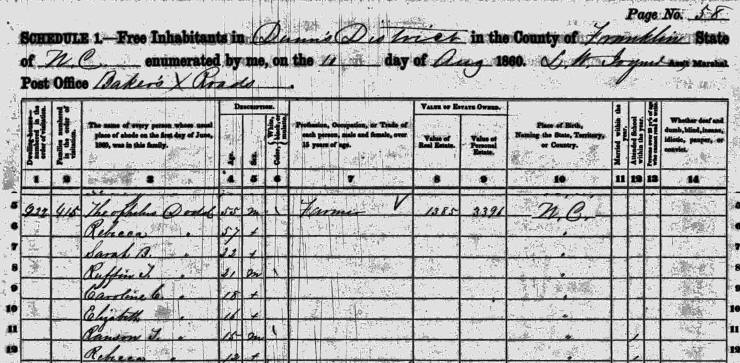 Page No. 58
SCHEDULE 1.—Free Inhabitants in Dunn's District in the County of Franklin State
of N.C. enumerated by me, on the 11 day of Aug 1860. Ass't Marshal
Post Office Baker's X Roads.
Dwelling-houses numbered in the order of visitation.
Families numbered in the order of visitation.
The name of every person whose usual place of abode on the first day of June, 1860, was in this family.
DESCRIPTION.
Age.
Sex.
Color,
Profession, Occupation, or Trade of each person, male and female, over 15 years of age.
VALUE OF ESTATE OWNED.
Value of Real Estate.
Value of Personal Estate.
Place of Birth, Naming the State, Territory, or Country.
Married within the year.
Attended School within the year.
Whether deaf and dumb, blind, insane, idiotic, pauper, or convict.
1 2 3 4 5 6 7 8 9 10 11 12 13 14
5 415 Theophelus Dodd 55 m Farmer 1385 3396 N.C. 5
6 Rebecca " 57 + " 6
7 Sarah B. " 22 + " 7
8 Ruffin T. " 21 m " 8
9 Caroline C. " 18 + " 9
10 Elizabeth " 16 + " 10
11 Ranson T. " 15 m " / 11
12 Rebecca " 12 + " / 12